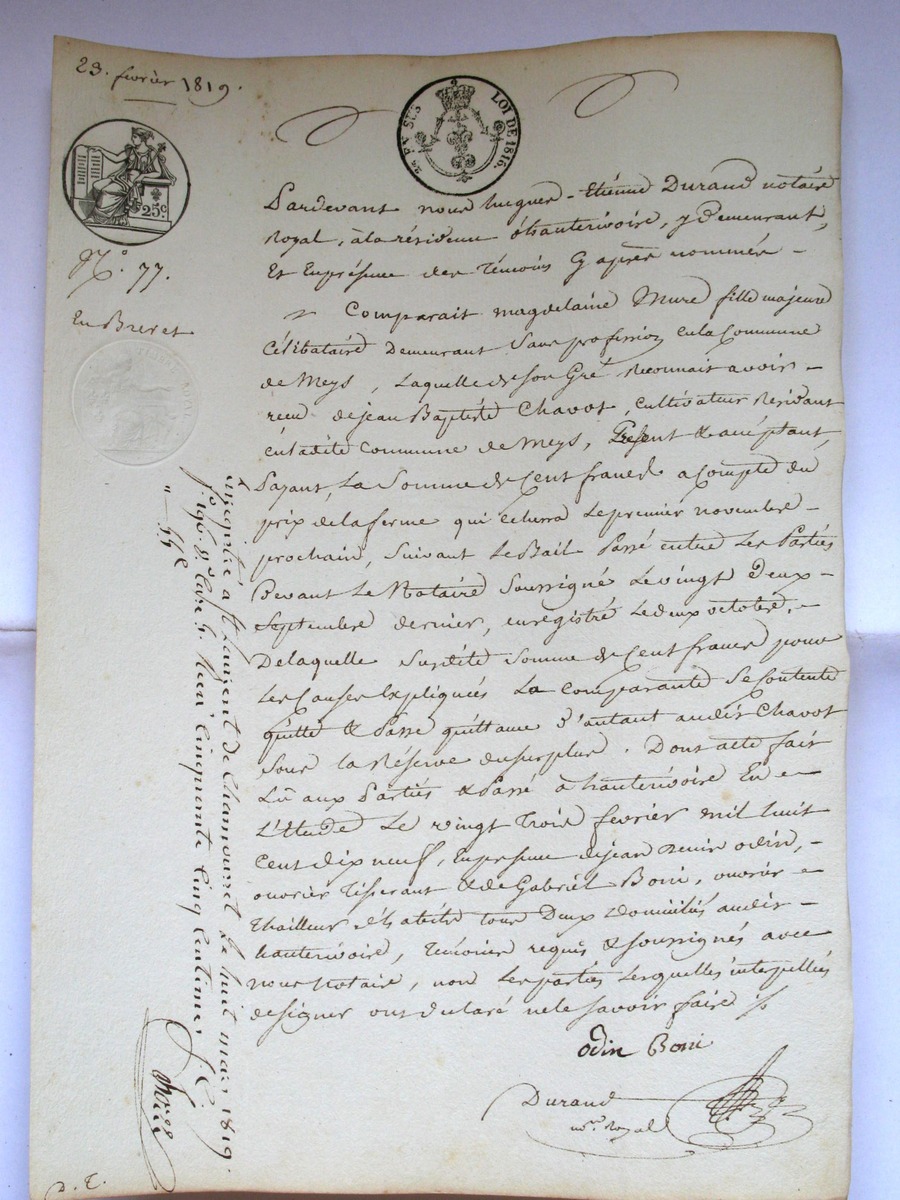 23. fevrier 1819.
2es EN SUS
LOI DE 1816.
25c
N.° 77.
En Brevet
TIMBRE ROYAL
Pardevant nous hugues-Etienne Durand notaire
Royal, à la résidence d'hauterivoire, y Demeurant,
Et En présence des témoins Cy après nommés -
Comparait magdelaine Mure fille majeure
Célibataire Demeurant Sans profession en la Commune
de Meys, Laquelle de Son Gré Reconnait avoir -
reçu de jean Baptiste Chavot, cultivateur Résidant
en ladite Commune de Meys, Présent & acceptant,
Payant, La Somme de Cent francs a Compte du
prix de la ferme qui echerra Le premier novembre -
prochain, Suivant Le Bail Passé entre Les Parties
Devant Le Notaire Soussigné Le vingt Deux -
Septembre dernier, enregistré Le deux octobre, -
De laquelle Susdite Somme de Cent francs pour
Les Causes Expliquées La comparante Se Contente
quitte & Passe quittance d'autant audit Chavot
Sous la Réserve du surplus. Dont acte fait
Lû aux Parties & Passé à hauterivoire En -
L'Etude Le vingt Trois février mil huit
Cent Dix neuf, En présence de jean odin, -
ouvrier Tisserant & de Gabriel Boni, ouvrier -
Thailleur d'habits tous Deux Domiciliés audit -
hauterivoire, Témoins requis & soussignés avec
nous Notaire, non Les parties Lesquelles interpellées
de signer ont déclaré ne le Savoir faire
odin Boni
Durand
nre Royal
Enregistré a St Laurent de Chamousset Le huit mars 1819.
f.° 196. Reçu Cinquante Cinq Centimes
" - 55c
D. T.